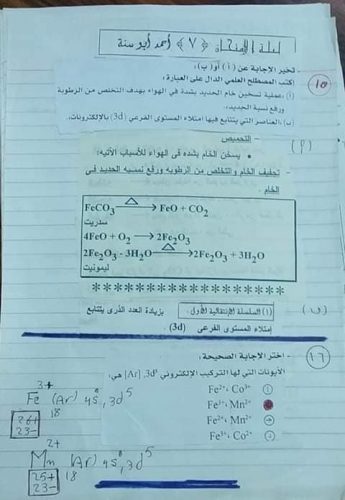 ليلة الامتحان (٧) أحمد أبو سنة
- تخير الإجابة عن (أ) أو (ب):
١٥
اكتب المصطلح العلمي الدال على العبارة:
(أ) عملية تسخين خام الحديد بشدة في الهواء بهدف التخلص من الرطوبة
ورفع نسبة الحديد.
(ب) العناصر التي يتتابع فيها امتلاء المستوى الفرعي (3d) بالإلكترونات.
(أ)
- التحميص
• يسخن الخام بشده فى الهواء للأسباب الآتيه:
- تجفيف الخام والتخلص من الرطوبه ورفع نسبه الحديد فى
الخام
FeCO3 △→ FeO + CO2
سدريت
4FeO + O2 → 2Fe2O3
2Fe2O3 · 3H2O △→ 2Fe2O3 + 3H2O
ليمونيت
(ب)
(١) السلسلة الانتقالية الأولى: بزيادة العدد الذرى يتتابع
امتلاء المستوى الفرعى (3d)
١٦
- اختر الإجابة الصحيحة:
الأيونات التي لها التركيب الإلكتروني [Ar] ,3d5 هي:
Fe2+، Co3+
Fe3+، Mn2+
Fe2+، Mn2+
Fe3+، Co2+
3+
Fe (Ar) 4s0, 3d5
18
26+
23-
2+
Mn (Ar) 4s0, 3d5
18
25+
23-